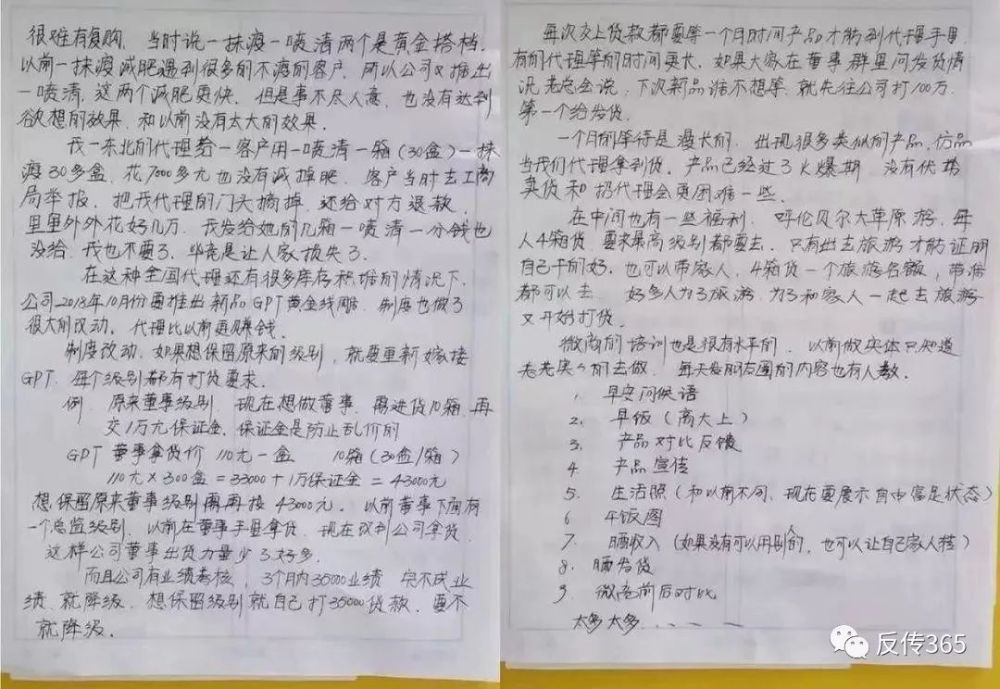 很难有复购。当时说一抹瘦一喷清两个是黄金搭档。
以前一抹瘦减肥遇到很多前不瘦的客户，所以公司又推出
一喷清，这两个减肥更快。但是事不尽人意，也没有达到
欲想的效果，和以前没有太大前效果。
我一东北的代理给一客户用一喷清一箱（30盒）一抹
瘦30多盒，花7000多元也没有减掉肥，客户当时去工商
局举报，把我代理的门头摘掉，还给对方退款，
里里外外花好几万，我发给她的几箱一喷清一分钱也
没给，我也不要了，毕竟是让人家损失了。
在这种全国代理还有很多库存积培的情况下，
公司2018年10月份要推出新品GPT黄金线雕，制度也做了
很大的改动，代理比以前更赚钱。
制度改动，如果想保留原来的级别，就要重新嫁接
GPT，每个级别都有打货要求。
例 原来董事级别，现在想做董事，需进货10箱，再
交1万元保证金，保证金是防止乱价的
GPT 董事拿货价 110元一盒 10箱（30盒/箱）
110元×300盒＝33000＋1万保证金＝43000元
想保留原来董事级别需再投43000元。以前董事下面有
一个总监级别，以前在董事手里拿货，现在改到公司拿货，
这样公司董事出货力量少了好多。
而且公司有业绩考核，3个月内35000业绩，完不成业
绩，就降级，想保留级别就自己打35000货款，要不
就降级。
每次交上货款都要等一个月时间产品才能到代理手里
有的代理等的时间更长，如果大家在董事群里问发货情
况老总会说，下次新品谁不想等，就先往公司打100万，
第一个给发货。
一个月的等待是漫长的，出现很多类似的产品，仿品
当我们代理拿到货，产品已经过了火爆期，没有优势
卖货和招代理会更困难一些。
在中间也有一些福利，呼伦贝尔大草原游，每
人4箱货，要求最高级别都要去，只有出去旅游才能证明
自己干的好，也可以带家人，4箱货一个旅游名额，带谁
都可以去。好多人为了旅游，为了和家人一起去旅游
又开始打货。
微商的培训也是很有水平的，以前做实体只知道
老老实实的去做，每天发朋友圈的内容也有人教。
1、早安问候语
2、早饭（高大上）
3、产品对比反馈
4、产品宣传
5、生活照（和以前不同，现在要展示自由富足状态）
6、午饭图
7、晒收入（如果没有可以用别人的，也可以让自己家人转）
8、晒发货
9、微商前后对比
太多太多……
反传365